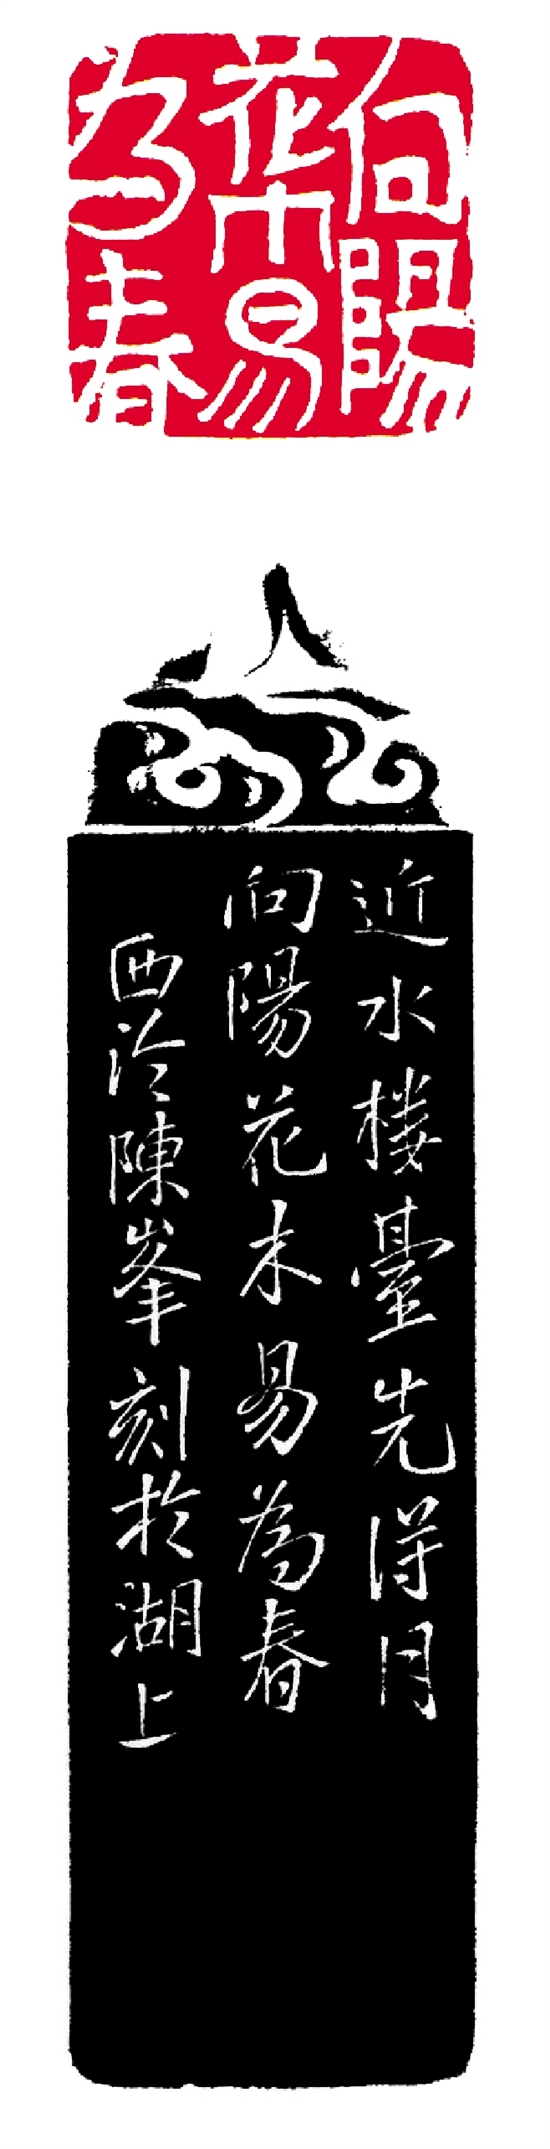 向陽
花木易
为春
近水楼臺先得月
向陽花木易為春
西泠陳峯刻於湖上